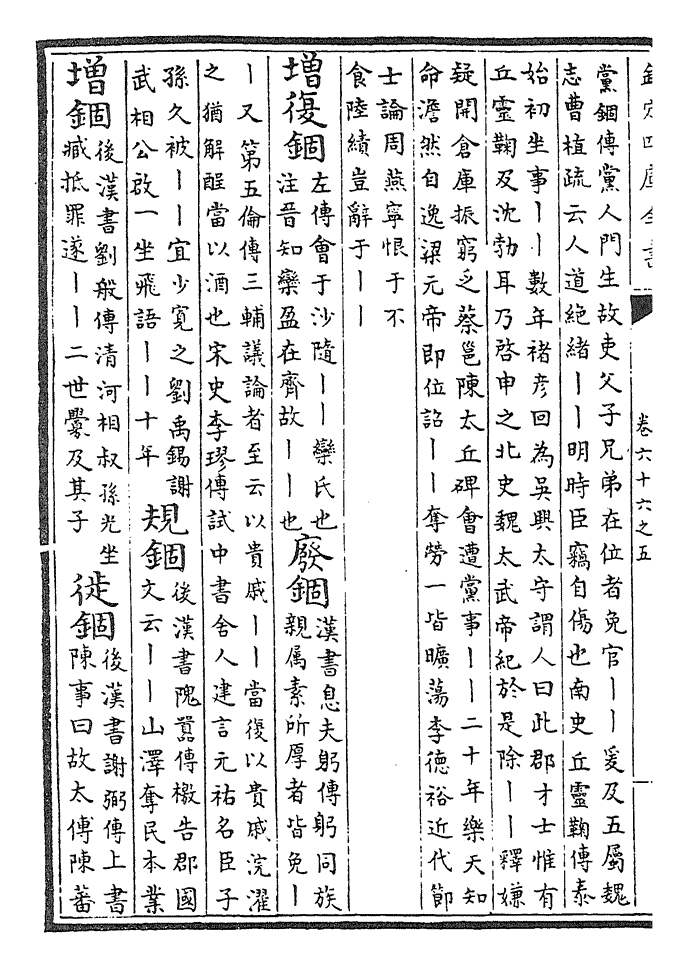 欽定四庫全書
卷六十六之五
黨錮傳黨人門生故吏父子兄弟在位者免官丨丨爰及五屬魏
志曹植疏云人道絶緒丨丨明時臣竊自傷也南史丘靈鞠傳泰
始初坐事丨丨數年褚彦回為吳興太守謂人曰此郡才士惟有
丘靈鞠及沈勃耳乃啓申之北史魏太武帝紀於是除丨丨釋嫌
疑開倉庫振窮乏蔡邕陳太丘碑會遭黨事丨丨二十年樂天知
命澹然自逸梁元帝即位詔丨丨奪勞一皆曠蕩李德裕近代節
士論周燕寧恨于不
食陸績豈辭于丨丨
增復錮
左傳會于沙隨丨丨欒氏也
注晉知欒盈在齊故丨丨也
廢錮
漢書息夫躬傳躬同族
親屬素所厚者皆免丨
丨又第五倫傳三輔議論者至云以貴戚丨丨當復以貴戚浣濯
之猶解酲當以酒也宋史李璆傳試中書舍人建言元祐名臣子
孫久被丨丨宜少寬之劉禹錫謝
武相公啟一坐飛語丨丨十年
規錮
後漢書隗囂傳檄告郡國
文云丨丨山澤奪民本業
增錮
後漢書劉般傳清河相叔孫光坐
臧抵罪遂丨丨二世釁及其子
徙錮
後漢書謝弼傳上書
陳事曰故太傅陳蕃